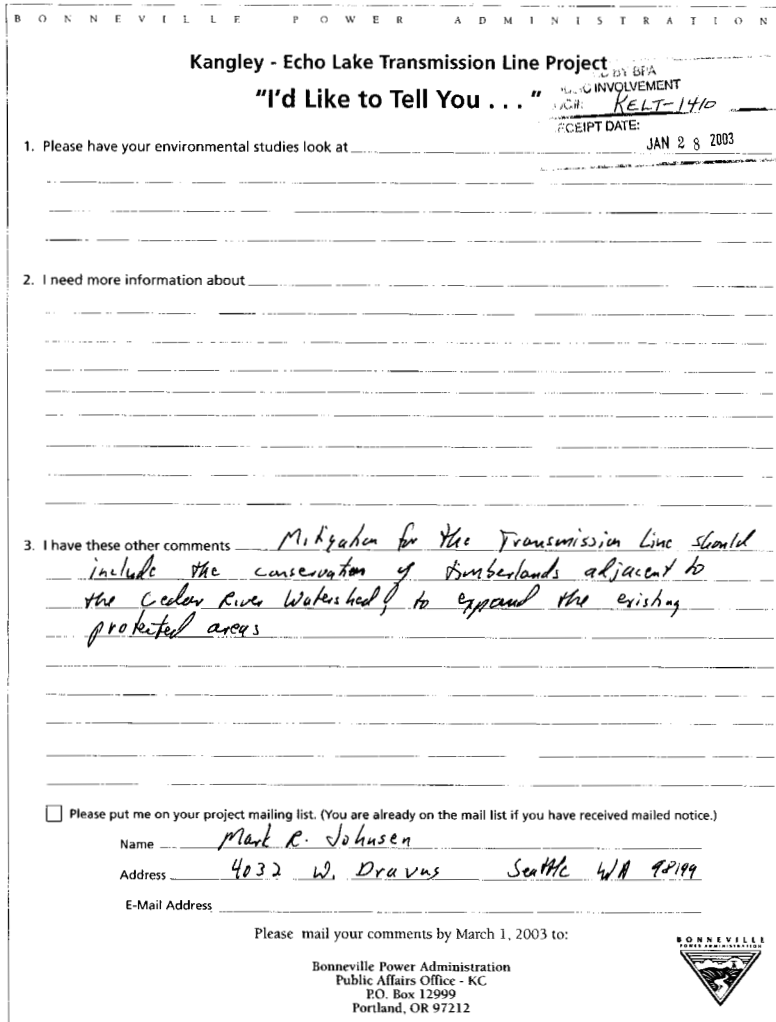 BONNEVILLE POWER ADMINISTRATION
Kangley - Echo Lake Transmission Line Project
"I'd Like to Tell You . . . "
BY BPA
INVOLVEMENT
KELT-1410
RECEIPT DATE:
JAN 28 2003
1. Please have your environmental studies look at
2. I need more information about
3. I have these other comments Mitigation for the Transmission Line should
include the conservation of timberlands adjacent to
the Cedar River Watershed, to expand the existing
protected areas
Please put me on your project mailing list. (You are already on the mail list if you have received mailed notice.)
Name Mark R. Johnsen
Address 4032 W. Dravus Seattle WA 98199
E-Mail Address
Please mail your comments by March 1, 2003 to:
BONNEVILLE
POWER ADMINISTRATION
Bonneville Power Administration
Public Affairs Office - KC
P.O. Box 12999
Portland, OR 97212